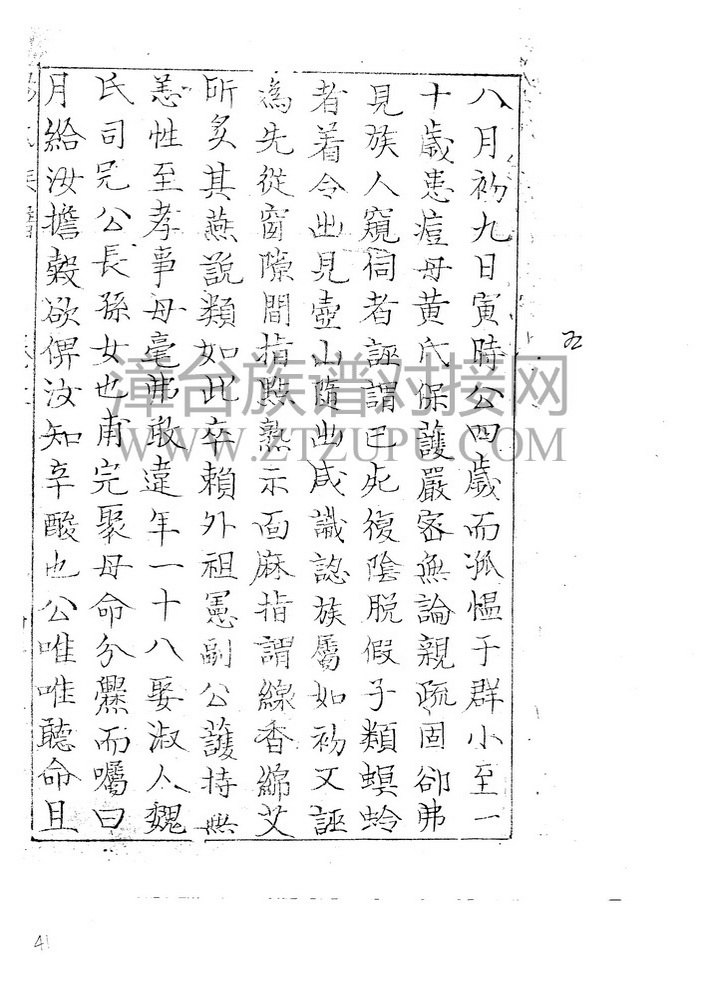 八月初九日寅時公四歲而孤慍于群小至一
十歲患痘母黃氏保護嚴密無論親疏固卻弗
見族人窺伺者誣謂已死復陰脫假子類螟蛉
者着令出見壺山隨出咸識認族屬如初又誣
為先從窗隙間指點熟示面麻指謂線香綿艾
所炙其燕說類如此卒賴外祖憲副公護持無
恙性至孝事母毫弗敢違年一十八娶淑人魏
氏司完公長孫女也甫完聚母命分爨而囑曰
月給汝擔穀欲俾汝知辛酸也公唯唯聽命且
五
漳台族谱对接网
WWW.ZTZUPU.COM
41